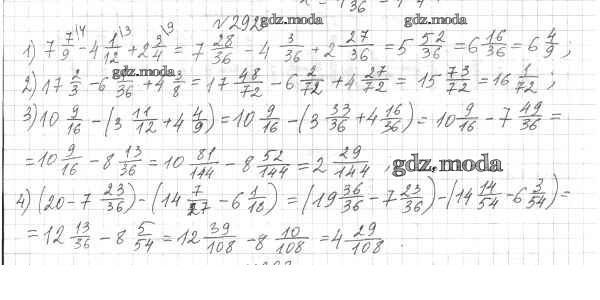 36
№292 gdz.moda gdz.moda
1) 7 7/9 - 4 1/12 + 2 3/4 = 7 28/36 - 4 3/36 + 2 27/36 = 5 52/36 = 6 16/36 = 6 4/9 ;
2) 17 2/3 - 6 /36 + 4 3/8 = 17 48/72 - 6 2/72 + 4 27/72 = 15 73/72 = 16 1/72 ; gdz.moda
3) 10 9/16 - (3 11/12 + 4 4/9) = 10 9/16 - (3 33/36 + 4 16/36) = 10 9/16 - 7 49/36 =
= 10 9/16 - 8 13/36 = 10 81/144 - 8 52/144 = 2 29/144 , gdz.moda
4) (20 - 7 23/36) - (14 7/27 - 6 1/18) = (19 36/36 - 7 23/36) - (14 14/54 - 6 3/54) =
= 12 13/36 - 8 5/54 = 12 39/108 - 8 10/108 = 4 29/108 .